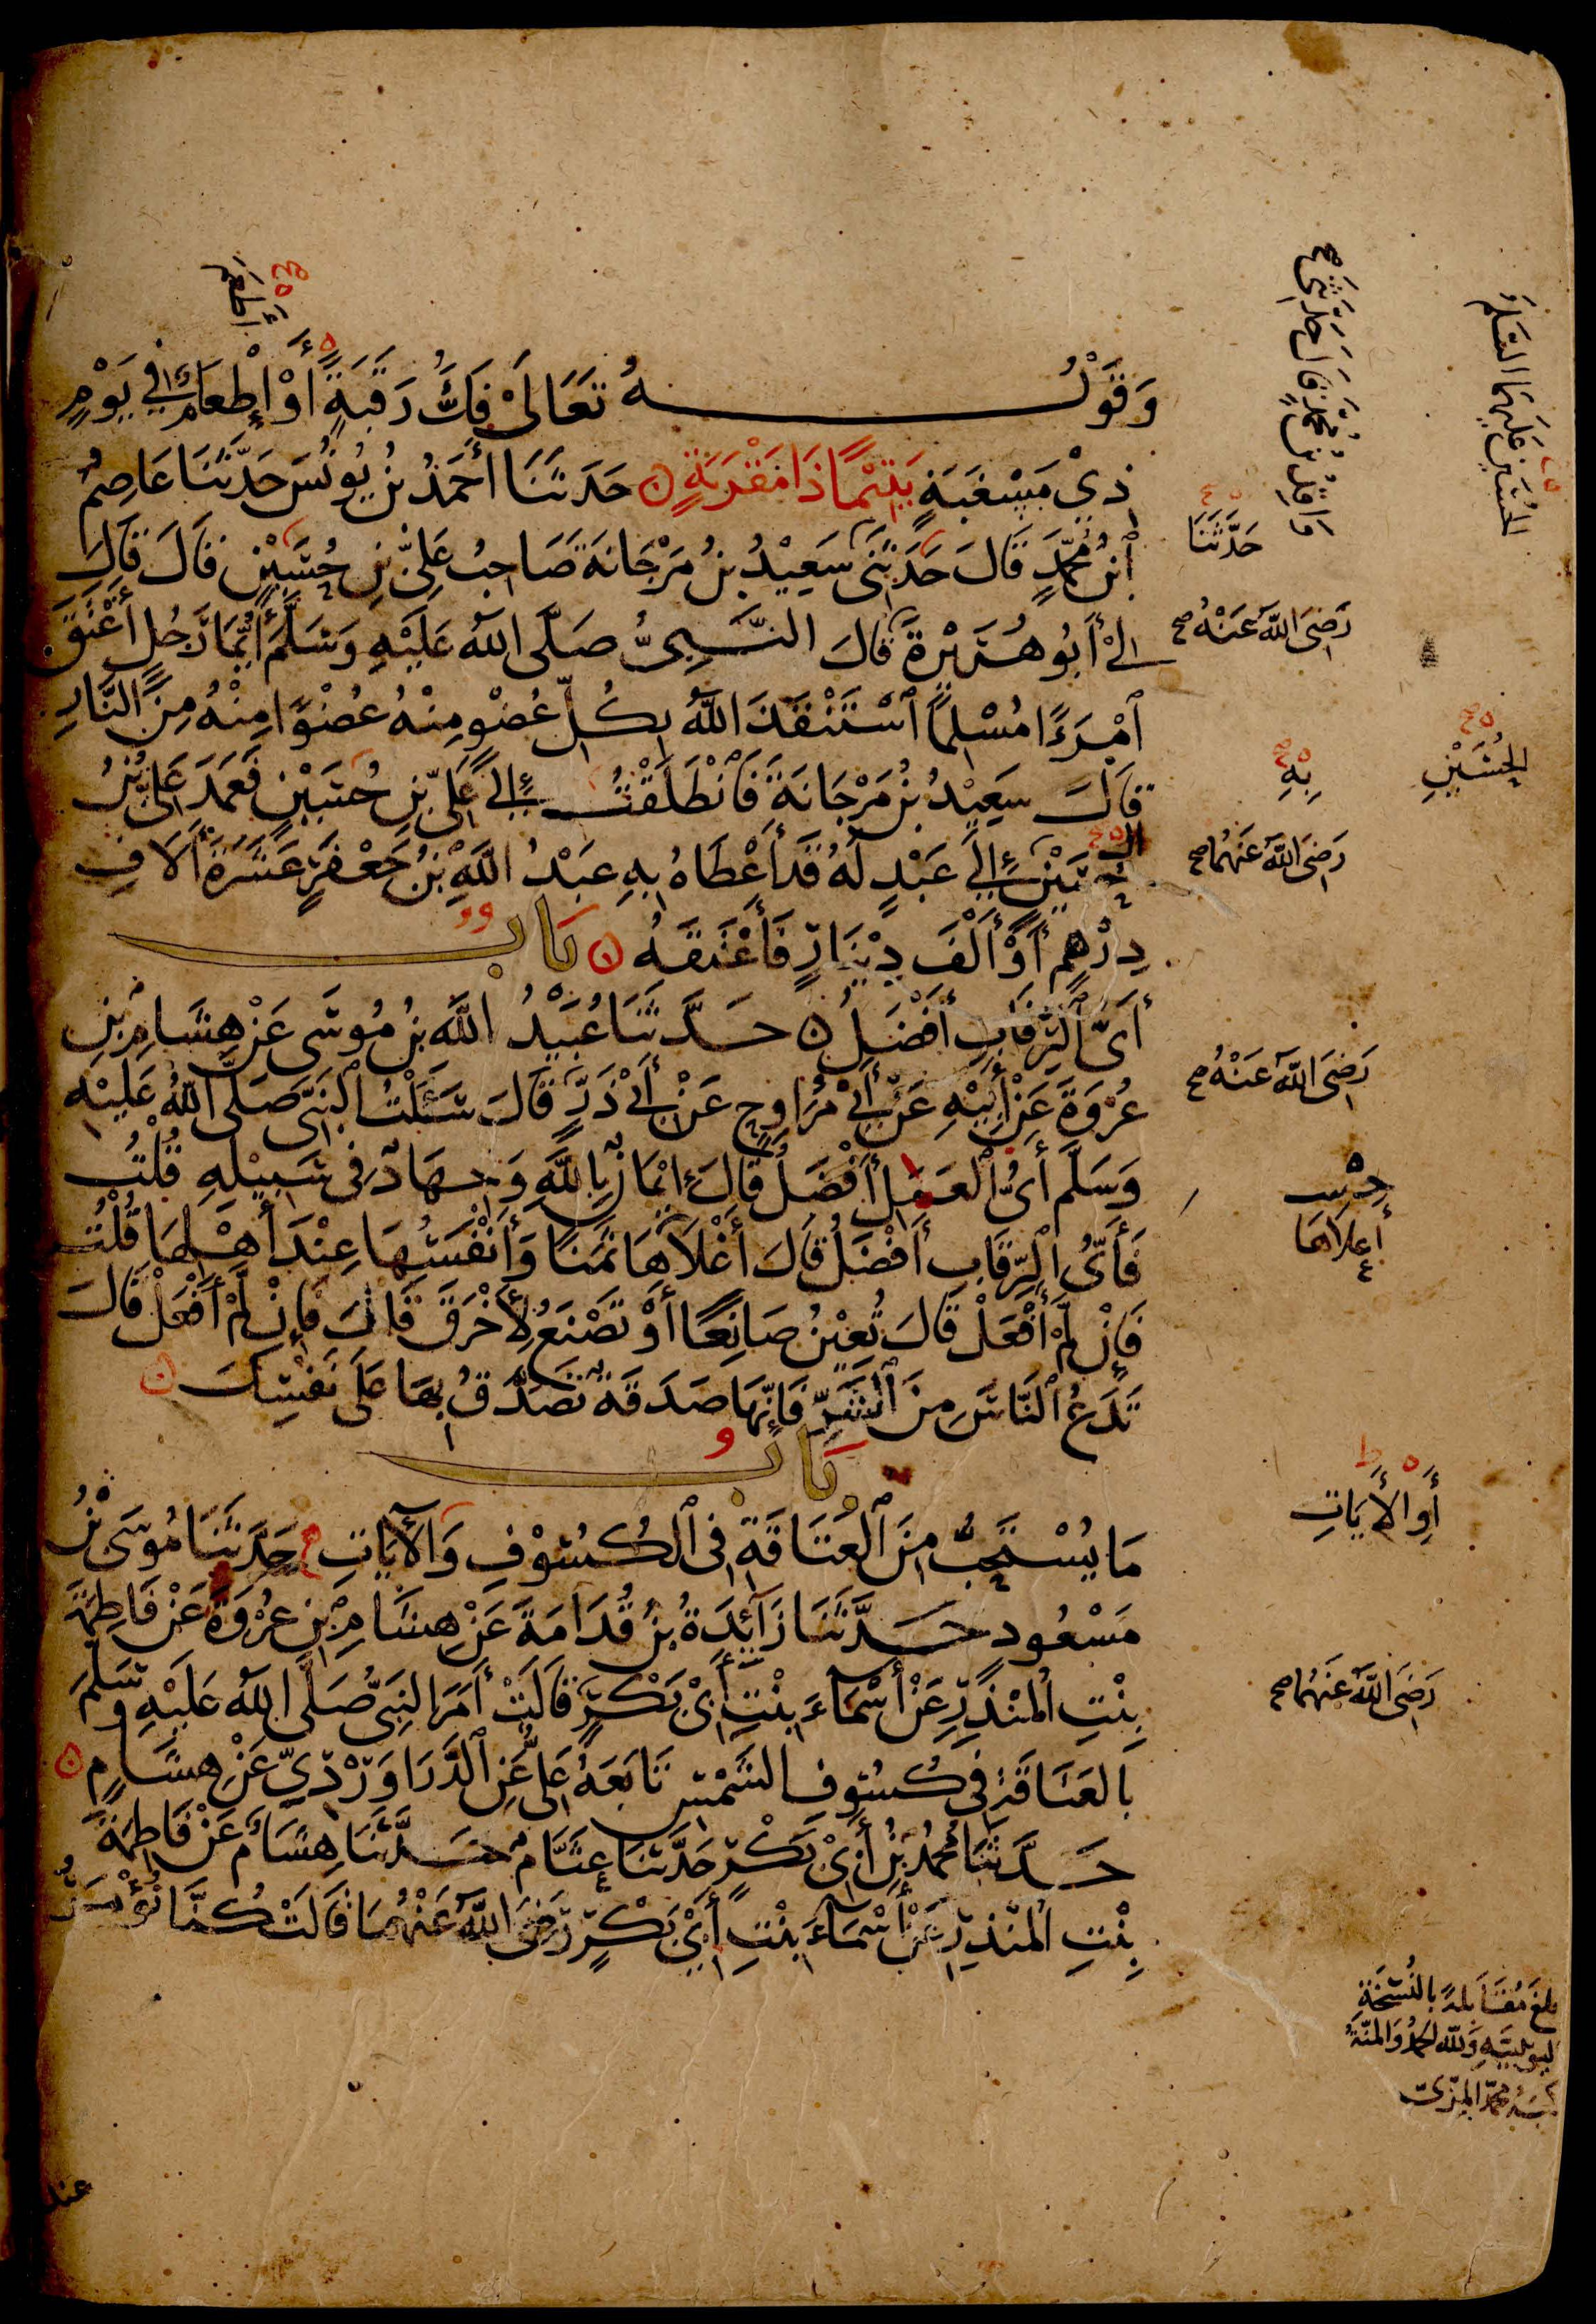 وَقَوْلُهُ تَعَالَى فَكُّ رَقَبَةٍ أَوْ إِطْعَامٌ فِي يَوْمٍ
ذِيْ مَسْغَبَةٍ يَتِيْمًا ذَا مَقْرَبَةٍ حَدَّثَنَا أَحْمَدُ بْنُ يُونُسَ حَدَّثَنَا عَاصِمُ
ٱبْنُ مُحَمَّدٍ قَالَ حَدَّثَنِي سَعِيْدُ بْنُ مَرْجَانَةَ صَاحِبُ عَلِيِّ بْنِ حُسَيْنٍ قَالَ قَالَ
لِيْ أَبُو هُرَيْرَةَ قَالَ النَّبِيُّ صَلَّى اللَّهُ عَلَيْهِ وَسَلَّمَ أَيُّمَا رَجُلٍ أَعْتَقَ
ٱمْرَءًا مُسْلِمًا ٱسْتَنْقَذَ اللَّهُ بِكُلِّ عُضْوٍ مِنْهُ عُضْوًا مِنْهُ مِنَ النَّارِ
قَالَ سَعِيْدُ بْنُ مَرْجَانَةَ فَٱنْطَلَقْتُ إِلَى عَلِيِّ بْنِ حُسَيْنٍ فَعَمَدَ عَلِيُّ بْنُ
الحُسَيْنِ إِلَى عَبْدٍ لَهُ قَدْ أَعْطَاهُ بِهِ عَبْدُ اللَّهِ بْنُ جَعْفَرٍ عَشَرَةَ أَلَافِ
دِرْهَمٍ أَوْ أَلْفَ دِيْنَارٍ فَأَعْتَقَهُ بَاب
أَيُّ ٱلرِّقَابِ أَفْضَلُ حَدَّثَنَا عُبَيْدُ اللَّهِ بْنُ مُوسَى عَنْ هِشَامِ بْنِ
عُرْوَةَ عَنْ أَبِيْهِ عَنْ أَبِيْ مُرَاوِحٍ عَنْ أَبِيْ ذَرٍّ قَالَ سَئَلْتُ النَّبِيَّ صَلَّى اللَّهُ عَلَيْهِ
وَسَلَّمَ أَيُّ ٱلْعَمَلِ أَفْضَلُ قَالَ إِيْمَانٌ بِاللَّهِ وَجِهَادٌ فِي سَبِيْلِهِ قُلْتُ
فَأَيُّ ٱلرِّقَابِ أَفْضَلُ قَالَ أَغْلَاهَا ثَمَنًا وَأَنْفَسُهَا عِنْدَ أَهْلِهَا قُلْتُ
فَإِنْ لَمْ أَفْعَلْ قَالَ تُعِيْنُ صَانِعًا أَوْ تَصْنَعُ لِأَخْرَقَ قَالَ فَإِنْ لَمْ أَفْعَلْ قَالَ
تَدَعُ ٱلنَّاسَ مِنَ ٱلشَّرِّ فَإِنَّهَا صَدَقَةٌ تَصَدَّقُ بِهَا عَلَى نَفْسِكَ
بَاب
مَا يُسْتَحَبُّ مِنَ ٱلْعَتَاقَةِ فِي ٱلْكُسُوْفِ وَالْآيَاتِ حَدَّثَنَا مُوسَى بْنُ
مَسْعُودٍ حَدَّثَنَا زَائِدَةُ بْنُ قُدَامَةَ عَنْ هِشَامِ بْنِ عُرْوَةَ عَنْ فَاطِمَةَ
بِنْتِ الْمُنْذِرِ عَنْ أَسْمَاءَ بِنْتِ أَبِيْ بَكْرٍ قَالَتْ أَمَرَ النَّبِيُّ صَلَّى اللَّهُ عَلَيْهِ وَسَلَّمَ
بِالعَتَاقَةِ فِي كُسُوفِ الشَّمْسِ تَابَعَهُ عَلِيٌّ عَنِ ٱلدَّرَاوَرْدِيِّ عَنْ هِشَامٍ
حَدَّثَنَا مُحَمَّدُ بْنُ أَبِيْ بَكْرٍ حَدَّثَنَا عَثَّامٌ حَدَّثَنَا هِشَامٌ عَنْ فَاطِمَةَ
بِنْتِ الْمُنْذِرِ عَنْ أَسْمَاءَ بِنْتِ أَبِيْ بَكْرٍ رَضِيَ اللَّهُ عَنْهُمَا قَالَتْ كُنَّا نُؤْمَرُ
أَطْعَمَ
وَاقِدُ بْنُ مُحَمَّدٍ قَالَ حَدَّثَنِي صح
الحُسَيْنِ عَلَيْهِمَا السَّلَمُ
حَدَّثَنَا
رَضِيَ اللَّهُ عَنْهُ صح
بِهِ
الحُسَيْنِ
رَضِيَ اللَّهُ عَنْهُمَا صح
رَضِيَ اللَّهُ عَنْهُ صح
أَعْلَاهَا
أَوِ الْأَيَاتِ
رَضِيَ اللَّهُ عَنْهُمَا صح
بلغ مُقَابلةً بالنُسْخَةِ
اليونينيه وَلله الحمد وَالمنّة
كتبه محمد المزّى
عند